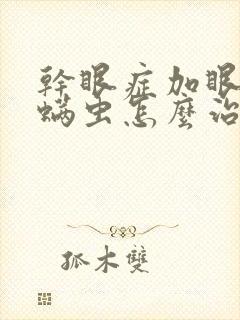 幹眼症加眼
螨虫怎麼治
孤木雙